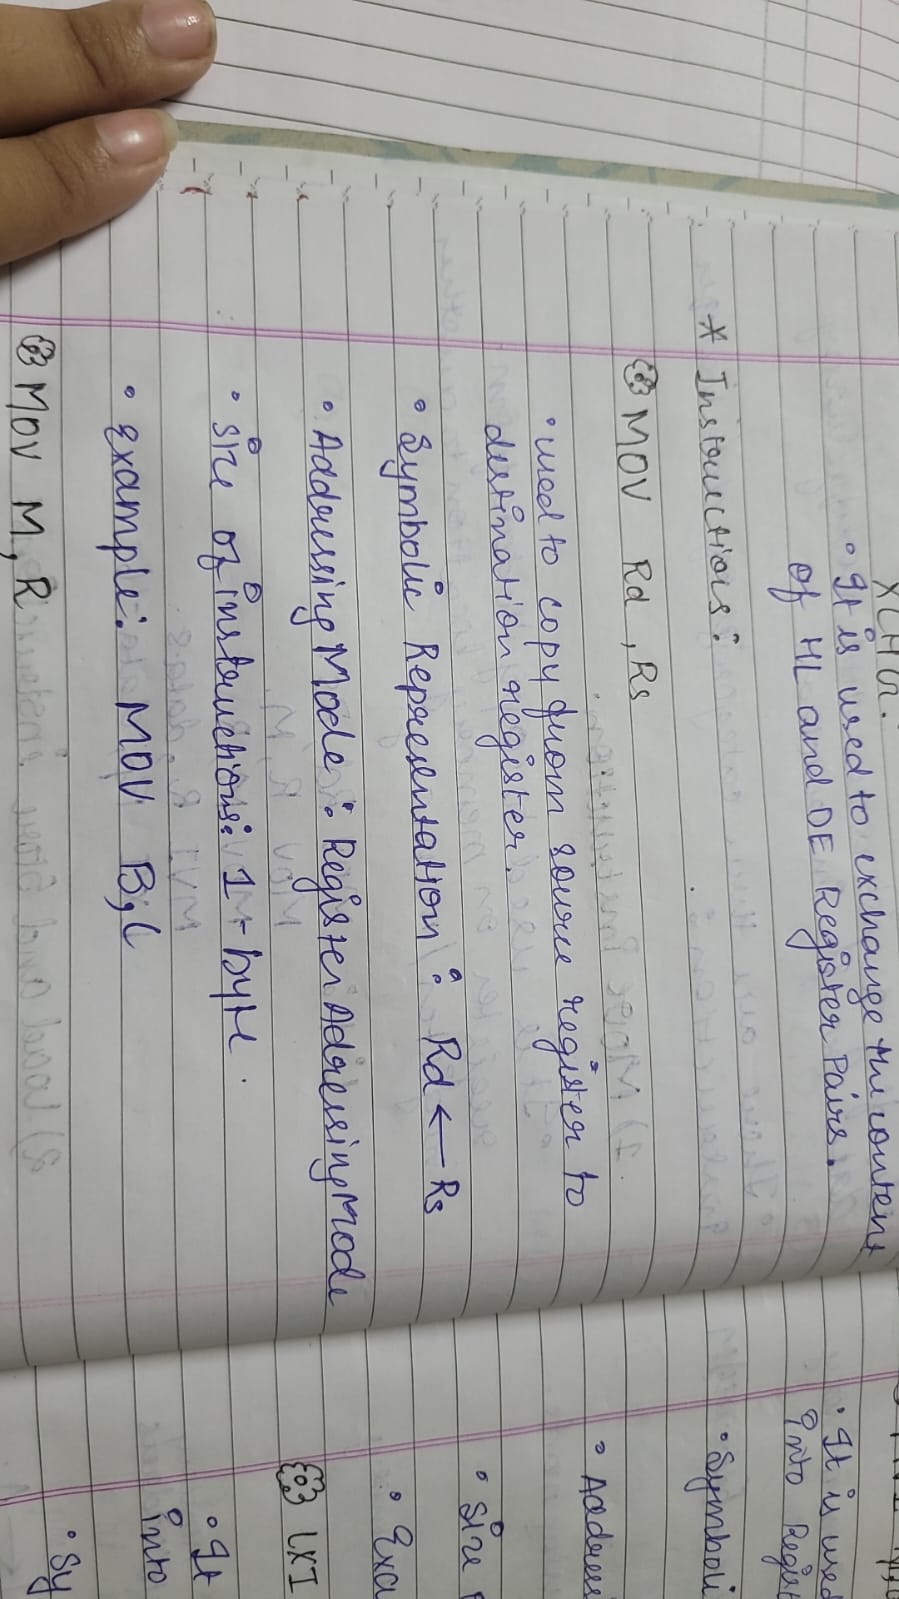 XCHG.
• It is used to exchange the content
of HL and DE Register Pairs.
* Instructions:
MOV Rd, Rs
• used to copy from source register to
destination register.
• Symbolic Representation: Rd ← Rs
• Addressing Mode: Register Adressing Mode
• size of instructions: 1-byte.
• example: MOV B,C
MOV M, R
• It is used
into Regist
• Symboli
• Addres
• Size
• Exa
LXI
• It
into
• Sy